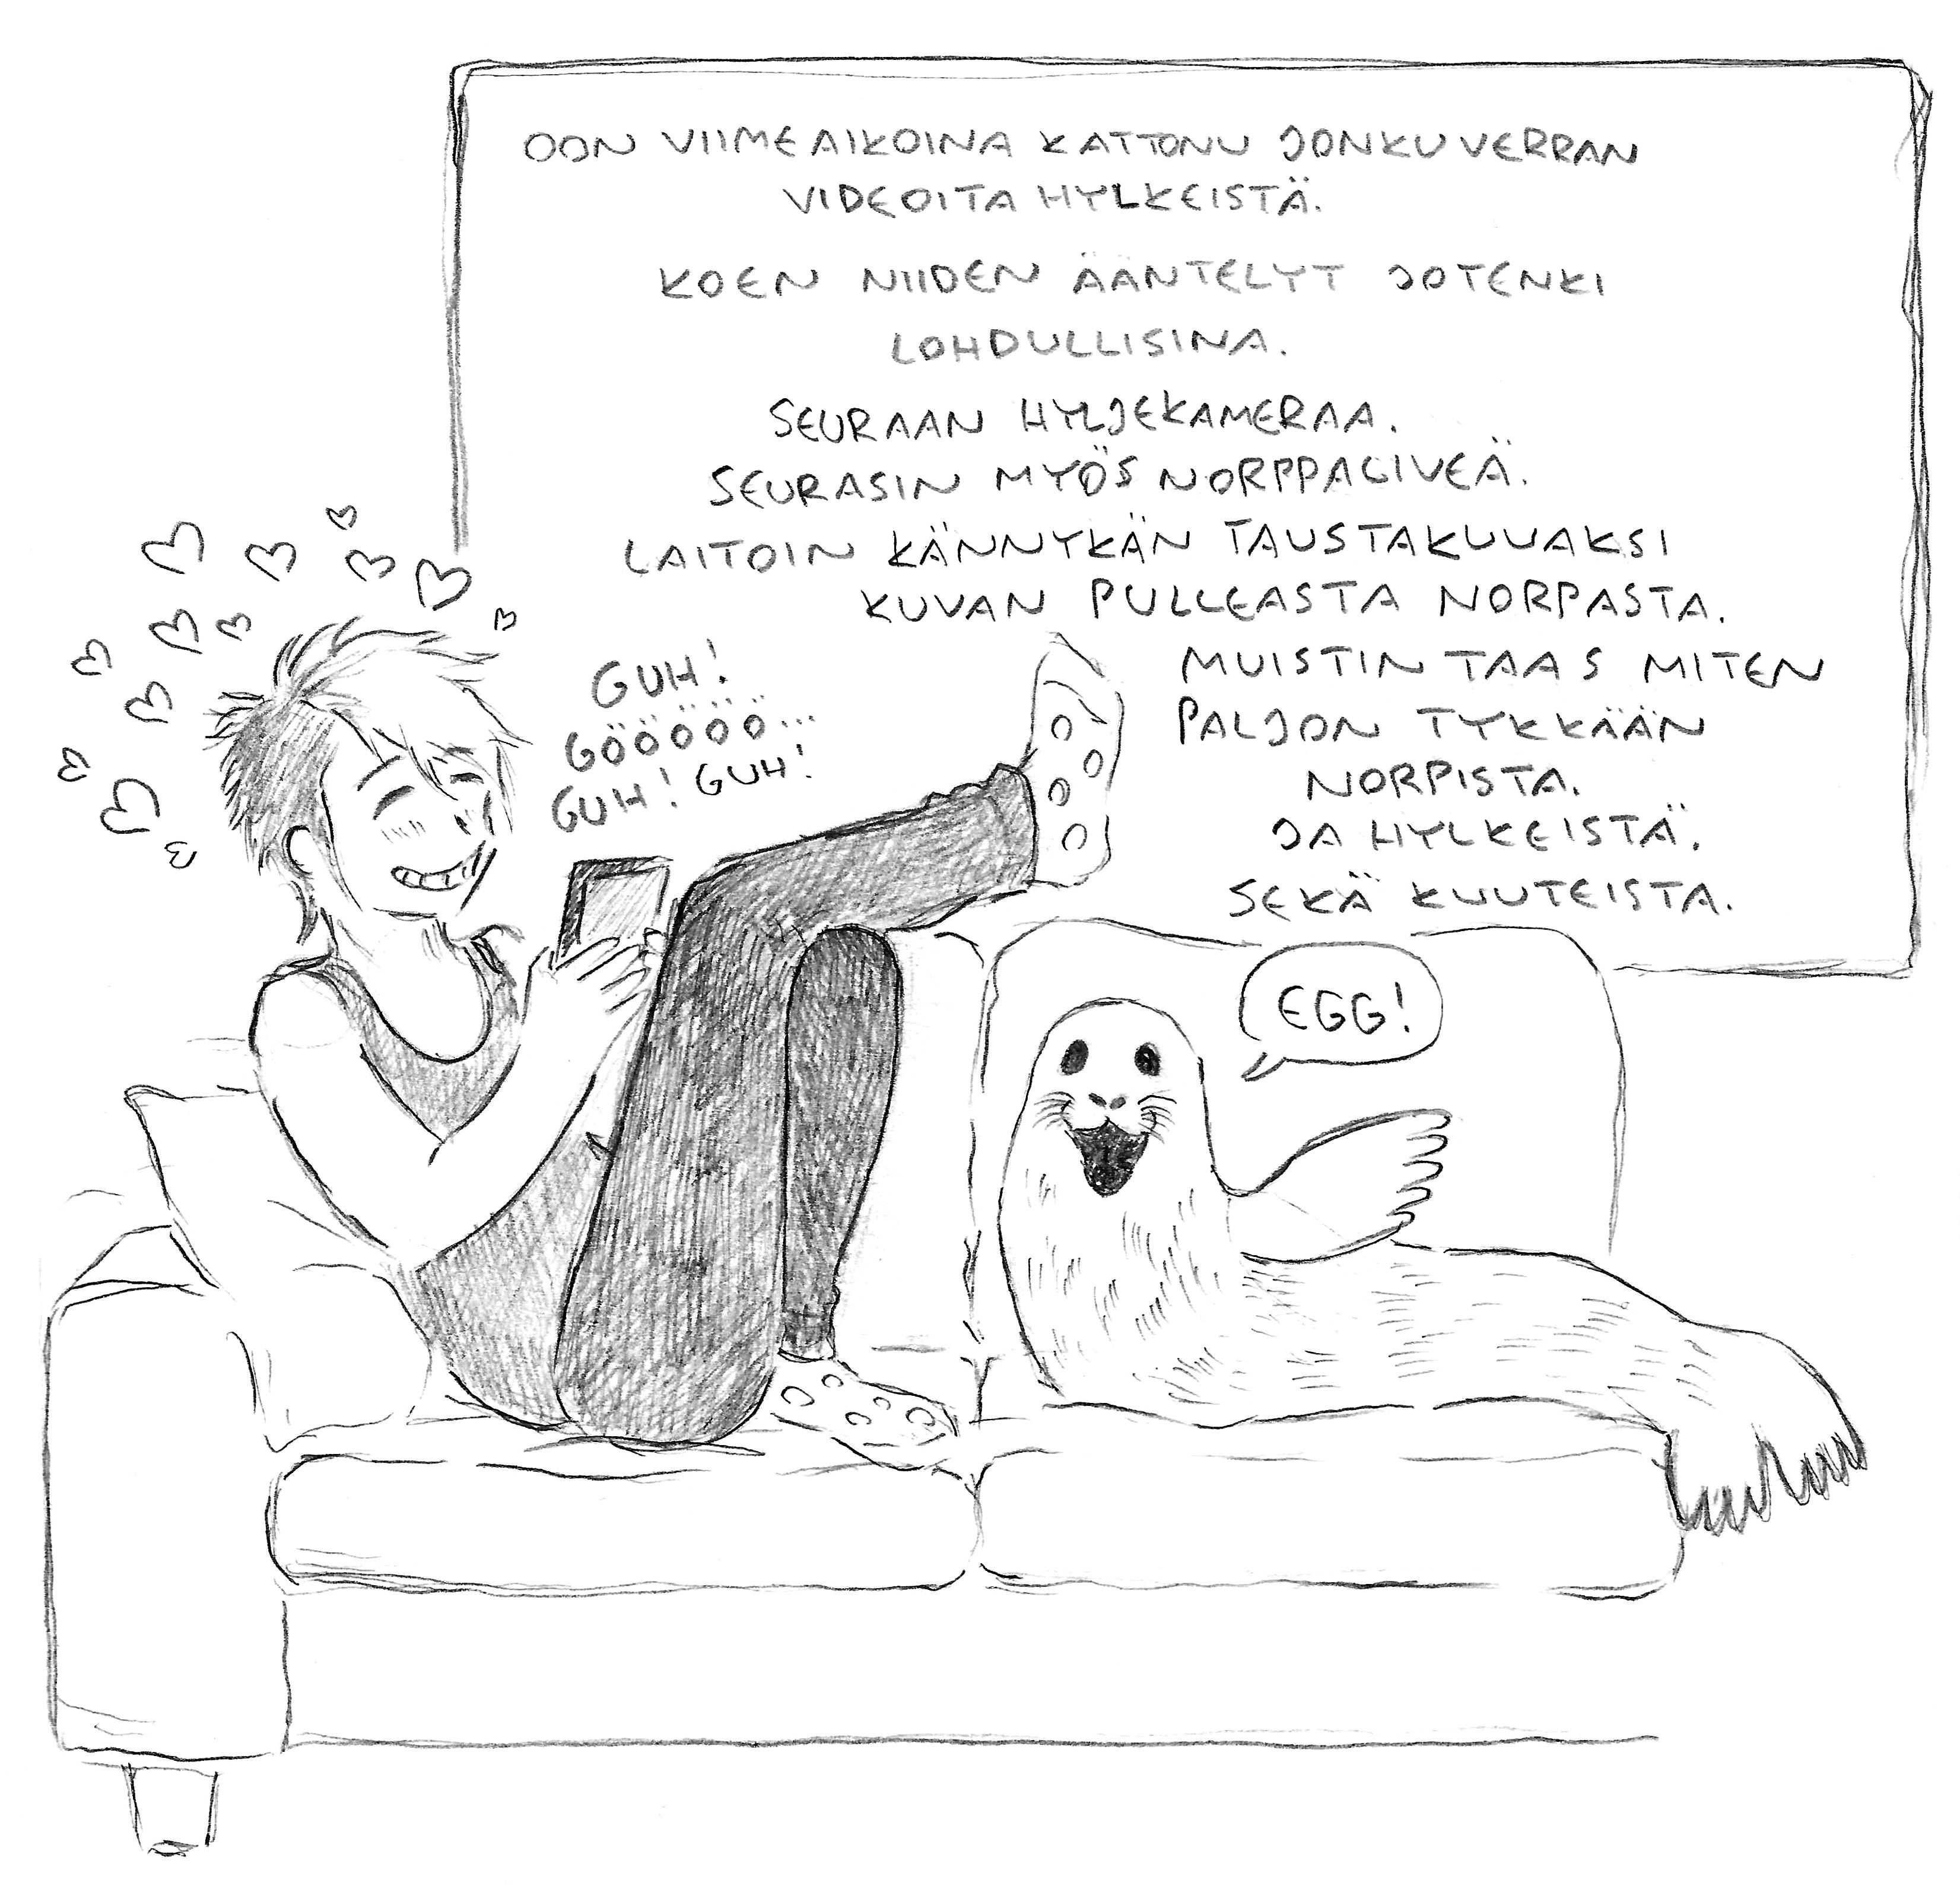 OON VIIMEAIKOINA KATTONU JONKU VERRAN
VIDEOITA HYLKEISTÄ.
KOEN NIIDEN ÄÄNTELYT JOTENKI
LOHDULLISINA.
SEURAAN HYLJEKAMERAA.
SEURASIN MYÖS NORPPALIVEÄ.
LAITOIN KÄNNYKÄN TAUSTAKUVAKSI
KUVAN PULLEASTA NORPASTA.
MUISTIN TAAS MITEN
PALJON TYKKÄÄN
NORPISTA.
JA HYLKEISTÄ.
SEKÄ KUUTEISTA.
GUH!
GÖÖÖÖÖ...
GUH! GUH!
EGG!